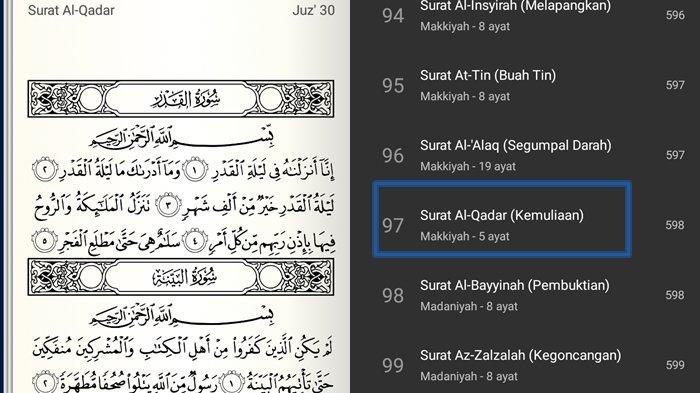 Surat Al-Qadar
Juz' 30
سُورَةُ القَدْرِ
بِسْمِ اللَّهِ الرَّحْمَٰنِ الرَّحِيمِ
إِنَّا أَنزَلْنَٰهُ فِي لَيْلَةِ الْقَدْرِ ١ وَمَا أَدْرَىٰكَ مَا لَيْلَةُ الْقَدْرِ ٢
لَيْلَةُ الْقَدْرِ خَيْرٌ مِّنْ أَلْفِ شَهْرٍ ٣ تَنَزَّلُ الْمَلَٰئِكَةُ وَالرُّوحُ
فِيهَا بِإِذْنِ رَبِّهِم مِّن كُلِّ أَمْرٍ ٤ سَلَٰمٌ هِيَ حَتَّىٰ مَطْلَعِ الْفَجْرِ ٥
سُورَةُ البَيِّنَةِ
بِسْمِ اللَّهِ الرَّحْمَٰنِ الرَّحِيمِ
لَمْ يَكُنِ الَّذِينَ كَفَرُوا مِنْ أَهْلِ الْكِتَٰبِ وَالْمُشْرِكِينَ مُنفَكِّينَ
حَتَّىٰ تَأْتِيَهُمُ الْبَيِّنَةُ ١ رَسُولٌ مِّنَ اللَّهِ يَتْلُوا صُحُفًا مُّطَهَّرَةً ٢
94 Surat Al-Insyirah (Melapangkan) 596
Makkiyah - 8 ayat
95 Surat At-Tin (Buah Tin) 597
Makkiyah - 8 ayat
96 Surat Al-'Alaq (Segumpal Darah) 597
Makkiyah - 19 ayat
97 Surat Al-Qadar (Kemuliaan) 598
Makkiyah - 5 ayat
98 Surat Al-Bayyinah (Pembuktian) 598
Madaniyah - 8 ayat
99 Surat Az-Zalzalah (Kegoncangan) 599
Madaniyah - 8 ayat